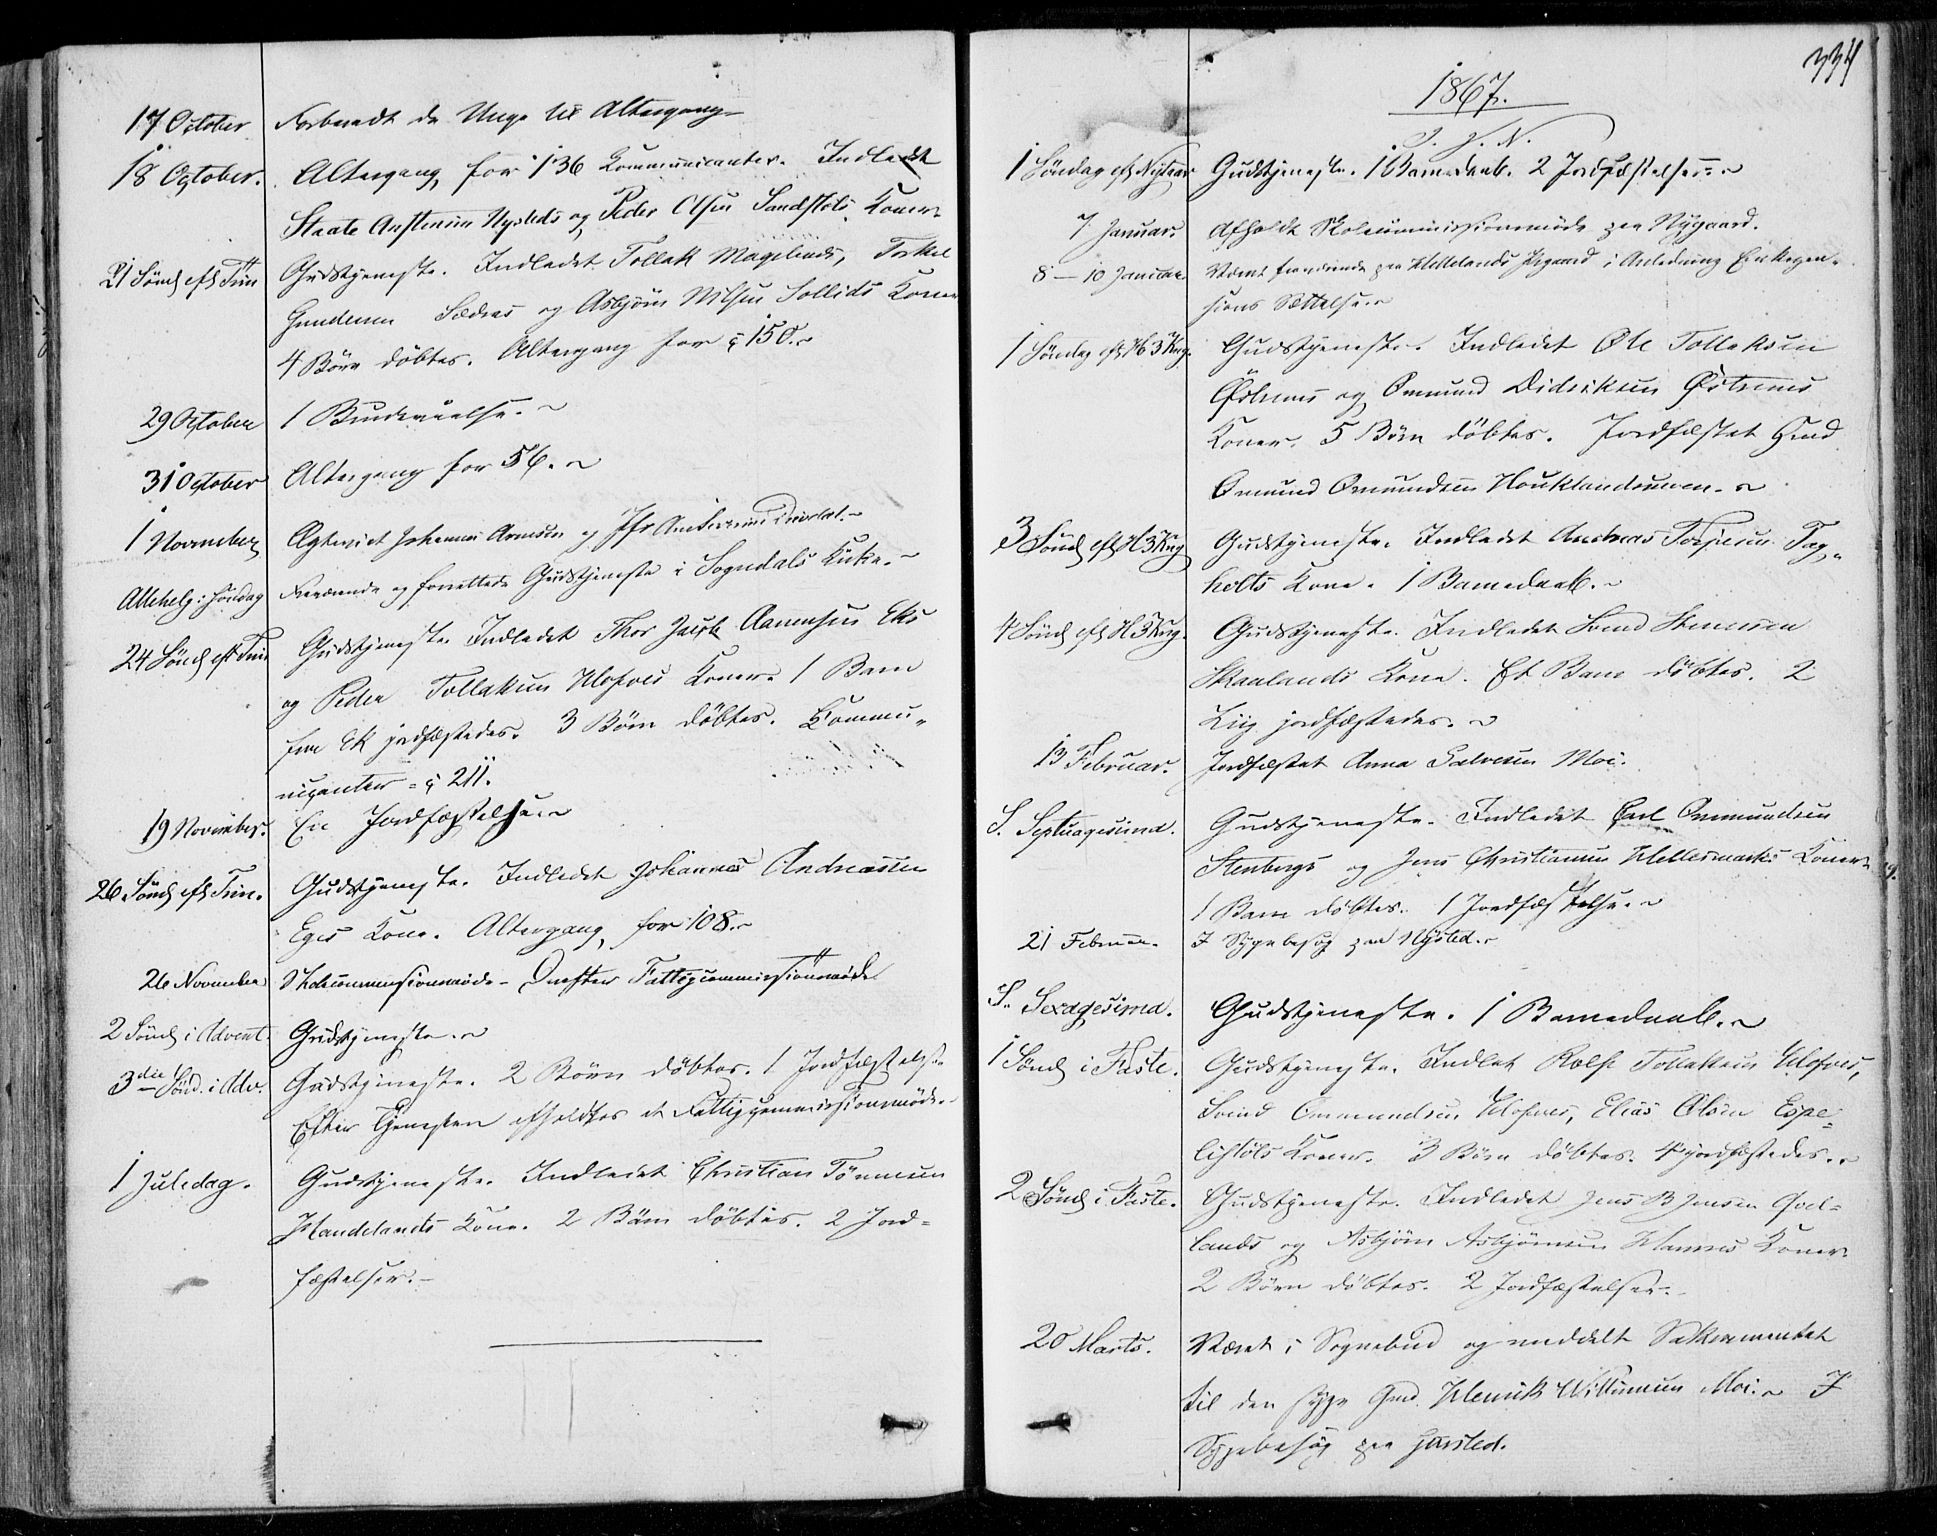 17 October Forberedt de Unge til Altergang
18 October. Altergang for 136 Communicanter. Indledet
Staale Nysteds og Peder Olsen Sandstøls Koner
21 Sönd eft Trin Gudstjeneste. Indledet Tollak Mageliens, Torkel
Gundersen og Asbjörn Nilsen Sollids Koner
4 Börn döbtes. Altergang for 150.
29 October 1 Brudevielse.
31 October Altergang for 56.
1 November Ægteviet Johannes og Jfr
Allehelg: Söndag Fraværende og forrettede Gudstjeneste i Sogndals Kirke.
24 Sönd eft Trin Gudstjeneste Indledet Thor Jacob Aanensen Eks
og Peder Tollaksen Koner 1 Barn
fra Ek jordfæstedes. 3 Börn döbtes. Commu-
nicanter = 211.
19 November. En Jordfæstelse.
26. Sönd eft Trin. Gudstjeneste. Indledet Johannes Andreassen
Eges Kone. Altergang for 108.
26 November Skolecommissionmöde - Derefter Fattigcommissionmöde
2 Sönd i Advent. Gudstjeneste.
3die Sönd. i Adv. Gudstjeneste. 2 Börn döbtes. 1 Jordfæstelse
Efter Tjenesten afholdtes et Fattigcommissionsmöde
1 Juledag. Gudstjeneste. Indledet Christian Tönnesen
Handelands Kone. 2 Börn döbtes. 2 Jord-
fæstelser.
334
1867.
I. J. N.
1 Söndag eft Nytaar Gudstjeneste. 1 Barnedaab. 2 Jordfæstelser
7 Januar. Afholdt Skolecommissionsmöde paa Nygaard.
8 - 10 Januar. Været fraværende paa Hellelands Prgaard i Anledning Enkepen-
sions Sættelse.
1 Söndag eft H 3 Kng. Gudstjeneste. Indledet Ole Tollaksen
Östrems og Omund Didriksen Östrems
Koner. 5 Börn döbtes. Jordfæstet Gmd
Omund Omundsen Houklandsmoen.
3 Sönd eft H 3 Kng Gudstjeneste. Indledet Andreas Torjesen Tag-
holts Kone. 1 Barnedaab.
4 Sönd eft H 3 Kng. Gudstjeneste. Indledet Svend Stenersen
Skaalands Kone. Et Barn döbtes. 2
Liig jordfæstedes.
13 Februar. Jordfæstet Anna Salvesen Moi.
S. Septuagesima. Gudstjeneste. Indledet Carl Ommundsen
Stenbergs og Jens Christiansen Koner
1 Barn döbtes. 1 Jordfæstelse.
21 Februar. I Sygebesög paa Nysted.
S. Sexagesima. Gudstjeneste. 1 Barnedaab.
1 Sönd i Faste. Gudstjeneste. Indlet Rolf Tollaksen
Svend Ommundsen Elias Olsen Espe-
listöls Koner. 3 Börn döbtes. 4 jordfæstedes.
2 Sönd i Faste. Gudstjeneste. Indledet Jens B Jensen Qvel-
lands og Asbjörn Asbjörnsen Koner
2 Börn döbtes. 2 Jordfæstelser.
20 Marts. Været i Sognebud og meddelt Sakramentet
til den syge Gmd. Henrik Willumsen Moi. I
Sygebesög paa